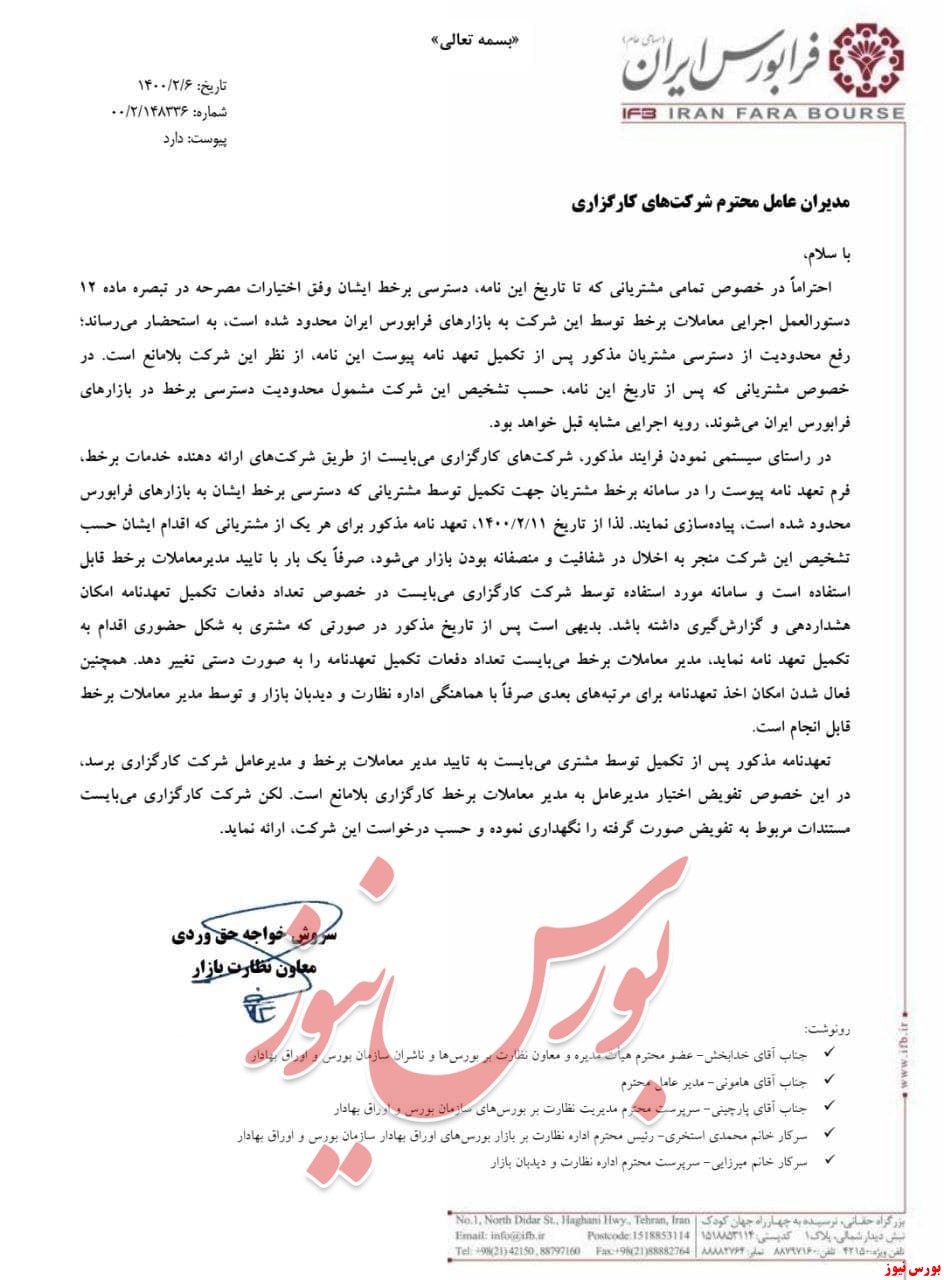 «بسمه تعالی»
فرابورس ایران
(سهامی عام)
IFB IRAN FARA BOURSE
تاریخ: ۱۴۰۰/۲/۶
شماره: ۰۰/۲/۱۴۸۳۳۶
پیوست: دارد
مدیران عامل محترم شرکت‌های کارگزاری
با سلام،
احتراماً در خصوص تمامی مشتریانی که تا تاریخ این نامه، دسترسی برخط ایشان وفق اختیارات مصرحه در تبصره ماده ۱۲
دستورالعمل اجرایی معاملات برخط توسط این شرکت به بازارهای فرابورس ایران محدود شده است، به استحضار می‌رساند؛
رفع محدودیت از دسترسی مشتریان مذکور پس از تکمیل تعهد نامه پیوست این نامه، از نظر این شرکت بلامانع است. در
خصوص مشتریانی که پس از تاریخ این نامه، حسب تشخیص این شرکت مشمول محدودیت دسترسی برخط در بازارهای
فرابورس ایران می‌شوند، رویه اجرایی مشابه قبل خواهد بود.
در راستای سیستمی نمودن فرایند مذکور، شرکت‌های کارگزاری می‌بایست از طریق شرکت‌های ارائه دهنده خدمات برخط،
فرم تعهد نامه پیوست را در سامانه برخط مشتریان جهت تکمیل توسط مشتریانی که دسترسی برخط ایشان به بازارهای فرابورس
محدود شده است، پیاده‌سازی نمایند. لذا از تاریخ ۱۴۰۰/۲/۱۱، تعهد نامه مذکور برای هر یک از مشتریانی که اقدام ایشان حسب
تشخیص این شرکت منجر به اخلال در شفافیت و منصفانه بودن بازار می‌شود، صرفاً یک بار با تایید مدیرمعاملات برخط قابل
استفاده است و سامانه مورد استفاده توسط شرکت کارگزاری می‌بایست در خصوص تعداد دفعات تکمیل تعهدنامه امکان
هشداردهی و گزارش‌گیری داشته باشد. بدیهی است پس از تاریخ مذکور در صورتی که مشتری به شکل حضوری اقدام به
تکمیل تعهد نامه نماید، مدیر معاملات برخط می‌بایست تعداد دفعات تکمیل تعهدنامه را به صورت دستی تغییر دهد. همچنین
فعال شدن امکان اخذ تعهدنامه برای مرتبه‌های بعدی صرفاً با هماهنگی اداره نظارت و دیدبان بازار و توسط مدیر معاملات برخط
قابل انجام است.
تعهدنامه مذکور پس از تکمیل توسط مشتری می‌بایست به تایید مدیر معاملات برخط و مدیرعامل شرکت کارگزاری برسد،
در این خصوص تفویض اختیار مدیرعامل به مدیر معاملات برخط کارگزاری بلامانع است. لکن شرکت کارگزاری می‌بایست
مستندات مربوط به تفویض صورت گرفته را نگهداری نموده و حسب درخواست این شرکت، ارائه نماید.
سروش خواجه حق وردی
معاون نظارت بازار
بورس نیوز
رونوشت:
✓ جناب آقای خدابخش- عضو محترم هیأت مدیره و معاون نظارت بر بورس‌ها و ناشران سازمان بورس و اوراق بهادار
✓ جناب آقای هامونی- مدیر عامل محترم
✓ جناب آقای پارچینی- سرپرست محترم مدیریت نظارت بر بورس‌های سازمان بورس و اوراق بهادار
✓ سرکار خانم محمدی استخری- رئیس محترم اداره نظارت بر بازار بورس‌های اوراق بهادار سازمان بورس و اوراق بهادار
✓ سرکار خانم میرزایی- سرپرست محترم اداره نظارت و دیدبان بازار
www.ifb.ir
بزرگراه حقانی، نرسیده به چهارراه جهان کودک
نبش دیدار شمالی، پلاک۱ کدپستی: ۱۵۱۸۸۵۳۱۱۴
تلفن ویژه: ۴۲۱۵۰ تلفن: ۸۸۷۹۷۱۶۰ نمابر: ۸۸۸۸۲۷۶۴
No.1, North Didar St., Haghani Hwy., Tehran, Iran
Email: info@ifb.ir Postcode:1518853114
Tel: +98(21) 42150 , 88797160 Fax:+98(21)88882764
بورس نیوز